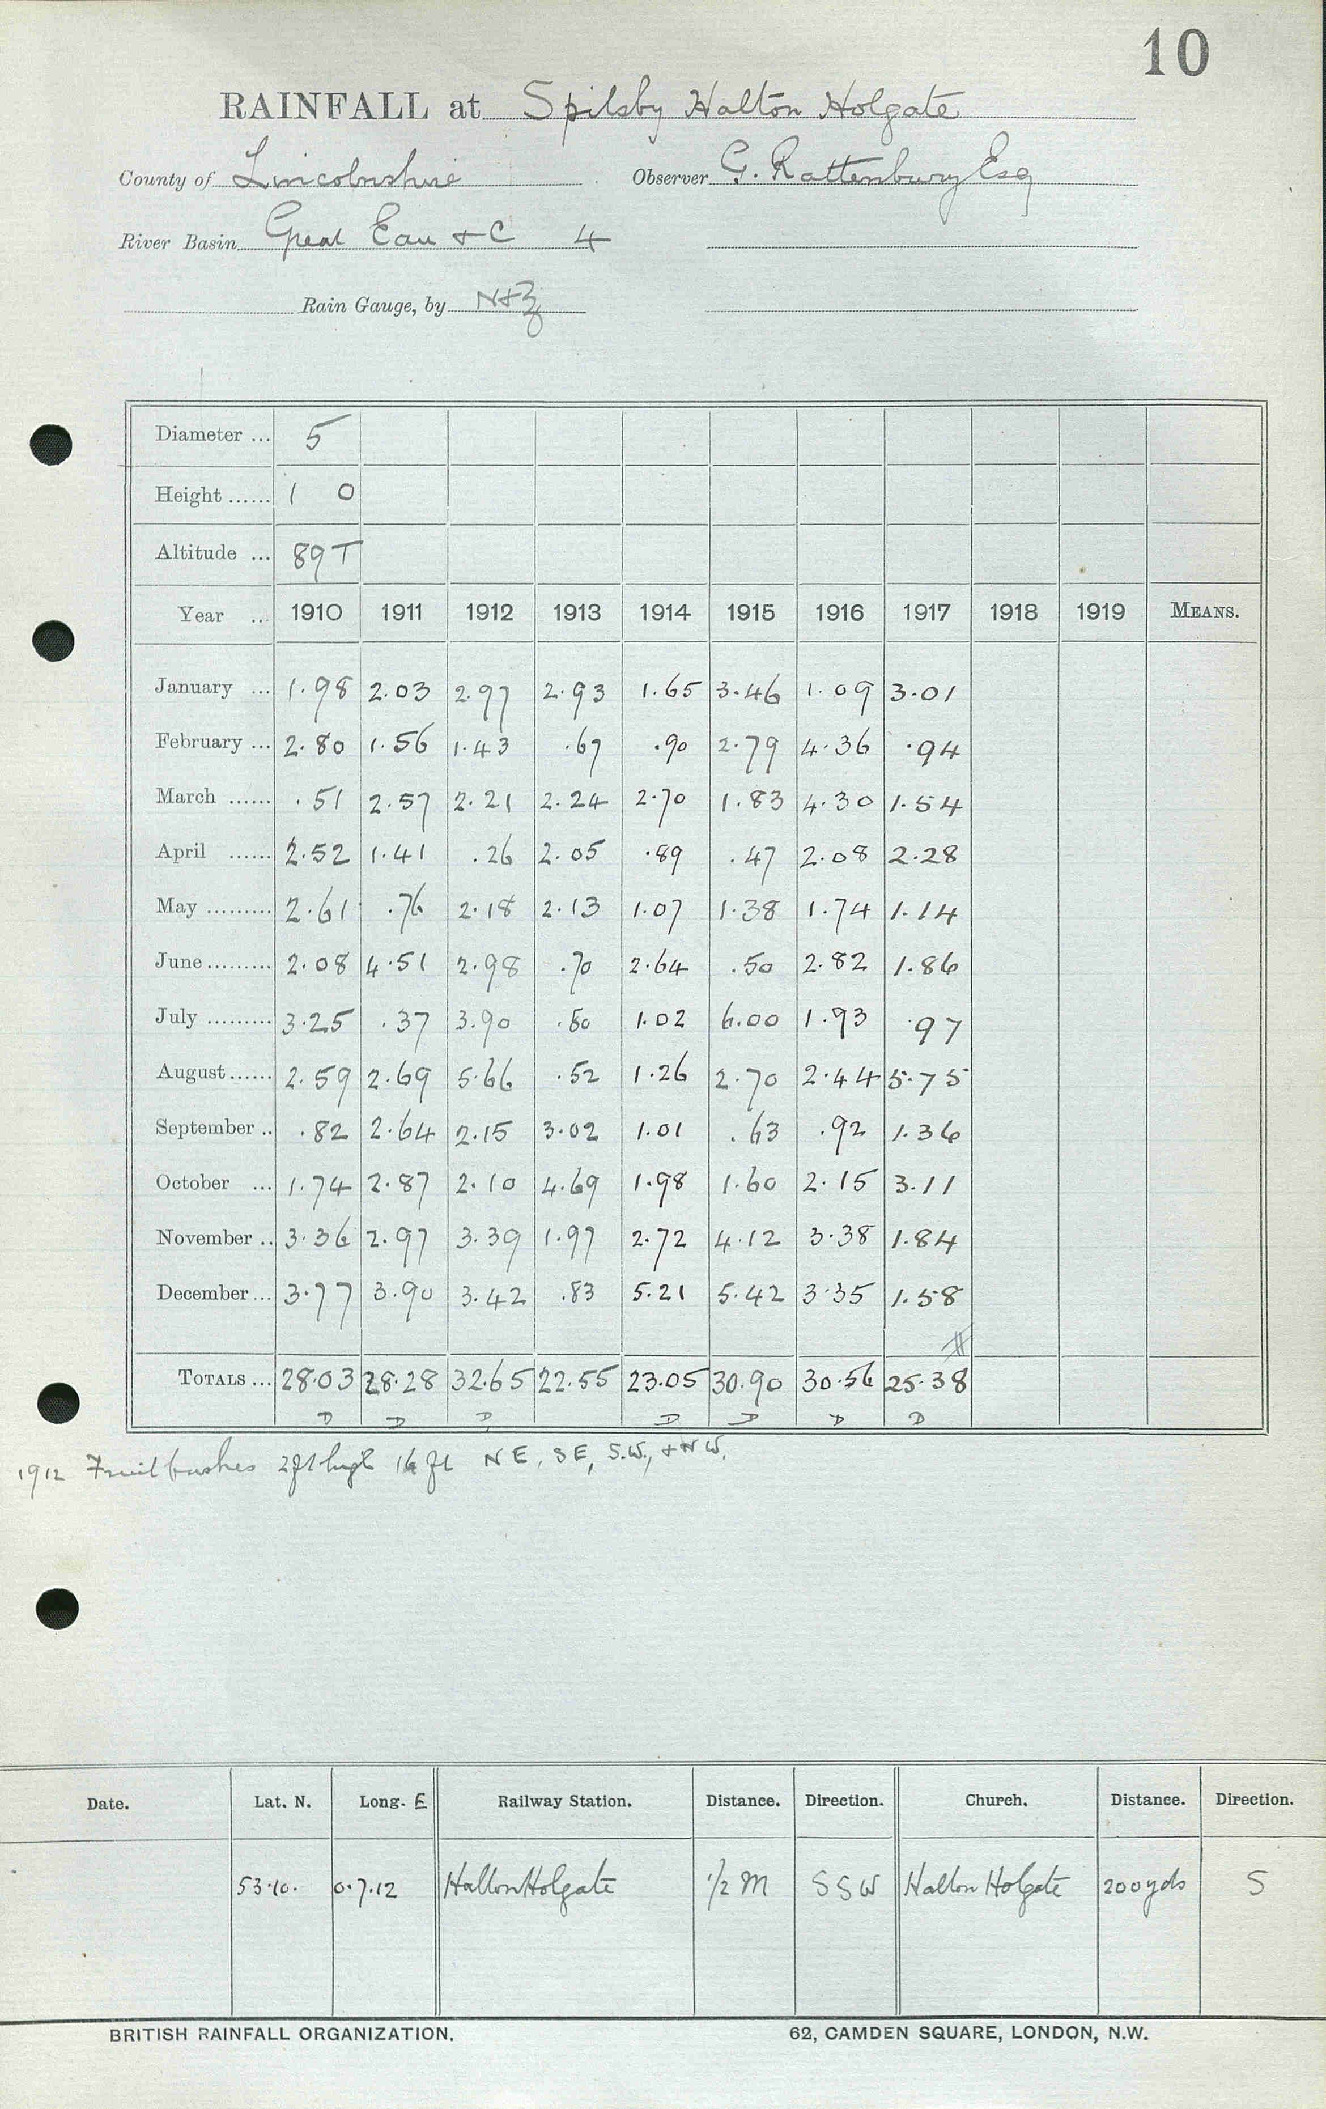 10
RAINFALL at Spilsby Halton Holgate
County of Lincolnshire Observer G. Rattenbury Esq
River Basin Great Eau & C 4
Rain Gauge, by N&Z
Diameter ... 5
Height ...... 1 0
Altitude ... 89 T
Year ... 1910 1911 1912 1913 1914 1915 1916 1917 1918 1919 MEANS.
January ... 1.98 2.03 2.97 2.93 1.65 3.46 1.09 3.01
February ... 2.80 1.56 1.43 .67 .90 2.79 4.36 .94
March ...... .51 2.57 2.21 2.24 2.70 1.83 4.30 1.54
April ...... 2.52 1.41 .26 2.05 .89 .47 2.08 2.28
May ......... 2.61 .76 2.18 2.13 1.07 1.38 1.74 1.14
June ......... 2.08 4.51 2.98 .70 2.64 .50 2.82 1.86
July ......... 3.25 .37 3.90 .80 1.02 6.00 1.93 .97
August ...... 2.59 2.69 5.66 .52 1.26 2.70 2.44 5.75
September .. .82 2.64 2.15 3.02 1.01 .63 .92 1.36
October ... 1.74 2.87 2.10 4.69 1.98 1.60 2.15 3.11
November .. 3.36 2.97 3.39 1.97 2.72 4.12 3.38 1.84
December ... 3.77 3.90 3.42 .83 5.21 5.42 3.35 1.58
TOTALS ... 28.03 28.28 32.65 22.55 23.05 30.90 30.56 25.38
D D D D D D D
1912 Fruit bushes 2ft high 16 ft NE, SE, S.W., & NW.
Date. Lat. N. Long. E Railway Station. Distance. Direction. Church. Distance. Direction.
53.10. 0.7.12 Halton Holgate 1/2 M SSW Halton Holgate 200 yds S
BRITISH RAINFALL ORGANIZATION. 62, CAMDEN SQUARE, LONDON, N.W.